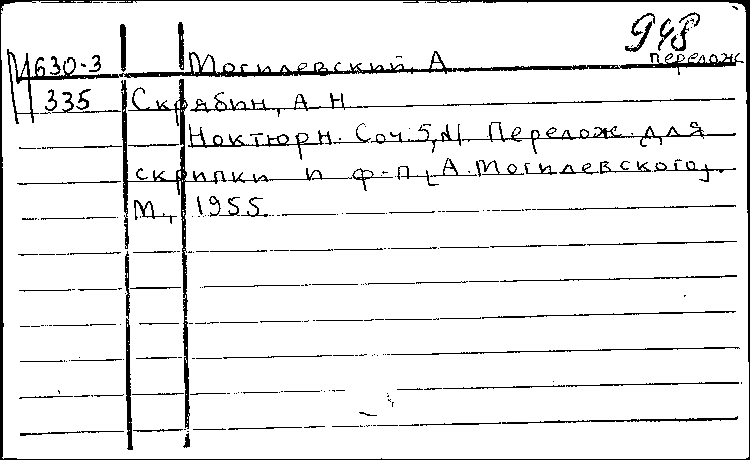 948
М630-3 Могилевский, А перелож
335 Скрябин, А Н
Ноктюрн. Соч. 5, №1. Перелож. для
скрипки и ф-п [А. Могилевского].
М., 1955.